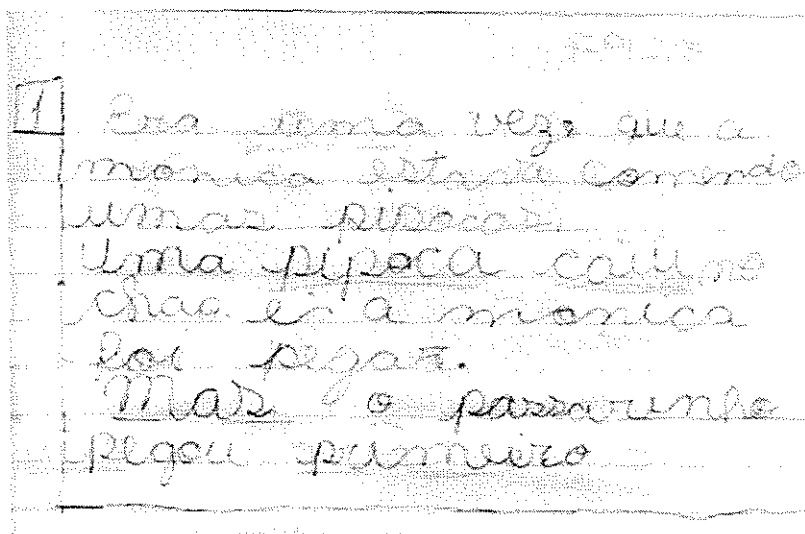 1 Era uma vez que a
monica estava comendo
umas pipocas.
Uma pipoca caiu no
chao. ei a monica
foi pegar.
Mas o passarinho
pegou primeiro